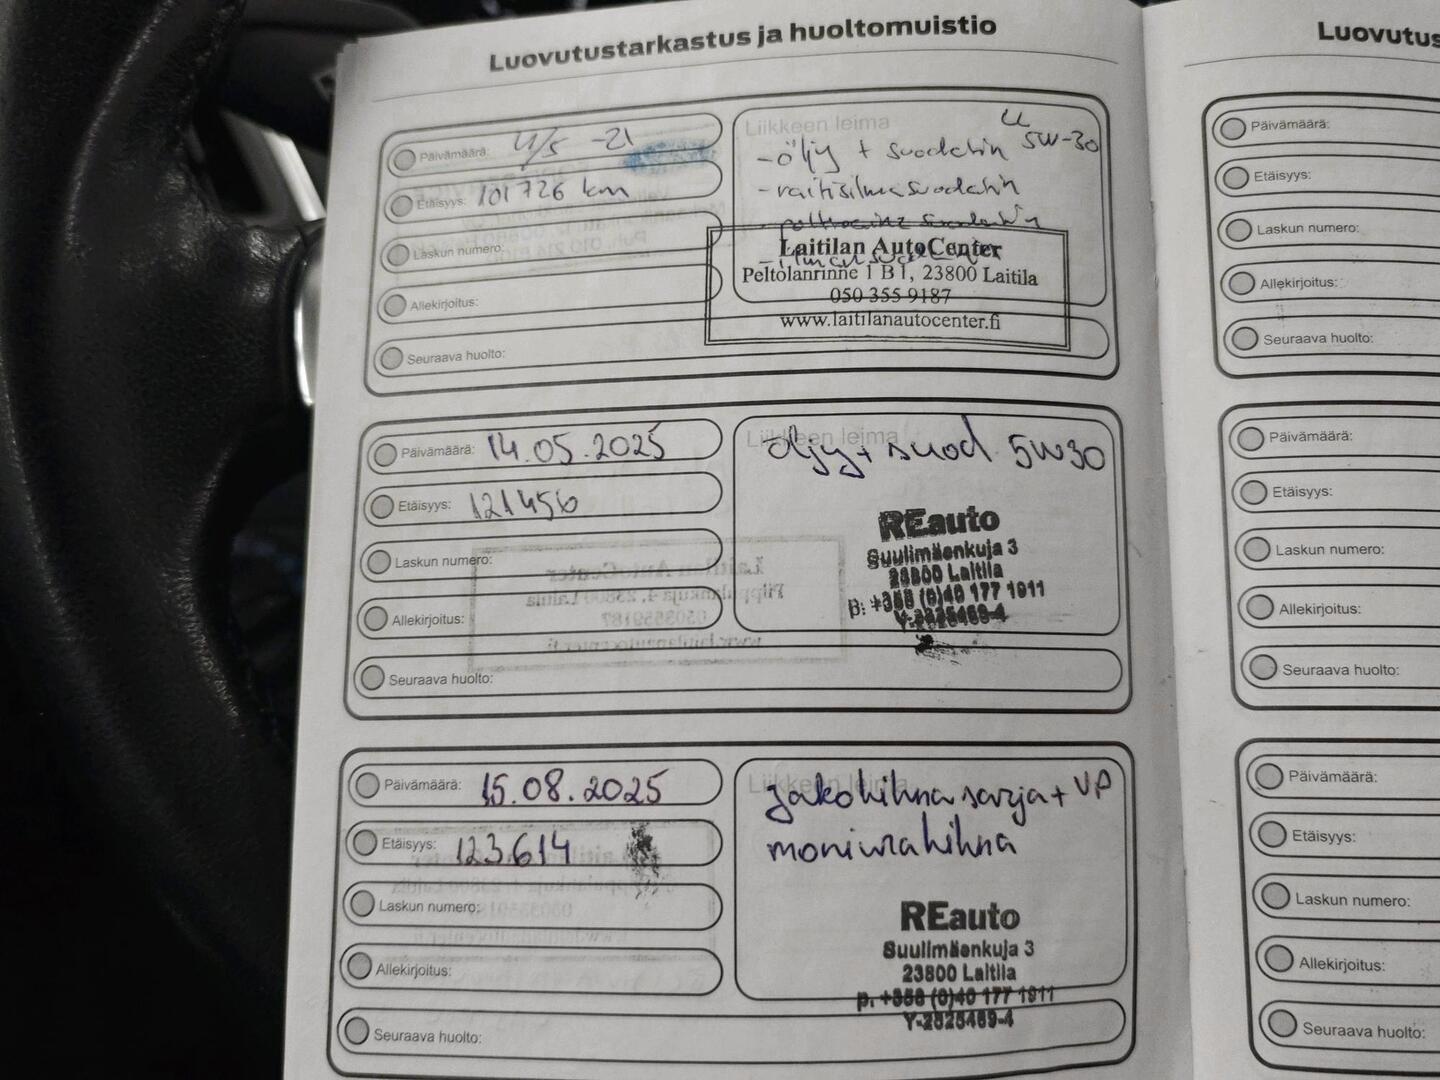 Luovutustarkastus ja huoltomuistio
Päivämäärä: 4/5 -21
Etäisyys: 101726 km
Laskun numero:
Allekirjoitus:
Seuraava huolto:
Liikkeen leima
-öljy + suodatin 5W-30
-raitisilmasuodatin
Laitilan AutoCenter
Peltolanrinne 1 B 1, 23800 Laitila
050 355 9187
www.laitilanautocenter.fi
Päivämäärä: 14.05.2025
Etäisyys: 121456
Laskun numero:
Allekirjoitus:
Seuraava huolto:
Liikkeen leima
öljy+ suod 5W30
REauto
Suulimäenkuja 3
23800 Laitila
p. +358 (0)40 177 1911
Y-2828469-4
Päivämäärä: 15.08.2025
Etäisyys: 123614
Laskun numero:
Allekirjoitus:
Seuraava huolto:
Liikkeen leima
jakohihna sarja + VP
moniurahihna
REauto
Suulimäenkuja 3
23800 Laitila
p. +358 (0)40 177 1911
Y-2828469-4
Luovutus
Päivämäärä:
Etäisyys:
Laskun numero:
Allekirjoitus:
Seuraava huolto:
Päivämäärä:
Etäisyys:
Laskun numero:
Allekirjoitus:
Seuraava huolto:
Päivämäärä:
Etäisyys:
Laskun numero:
Allekirjoitus:
Seuraava huolto: